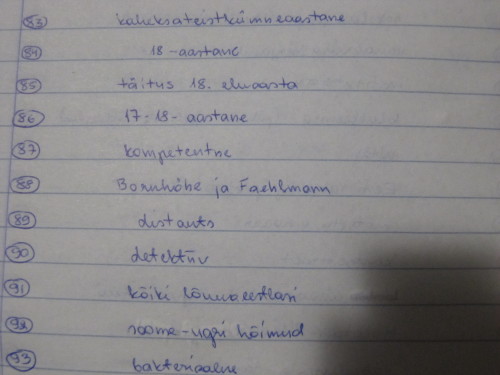 83 kaheksateistkümneaastane
84 18-aastane
85 täitus 18. eluaasta
86 17-18-aastane
87 kompetentne
88 Bornhöhe ja Faehlmann
89 distants
90 detektiiv
91 kõiki lõunaeestlasi
92 soome-ugri hõimud
93 bakteriaalne